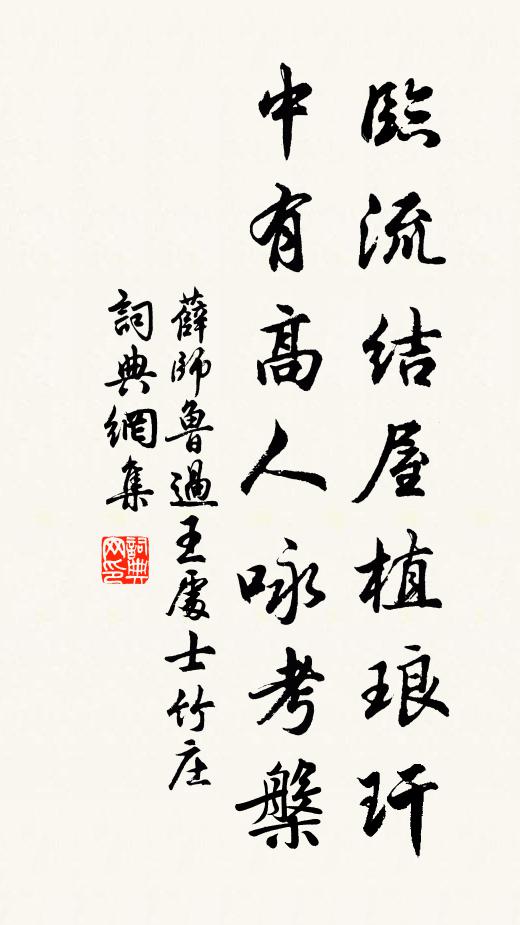 臨流结屋植琅玕
中有高人咏考槃
薛師魯過王處士竹庄
詞典網集
詞典網印